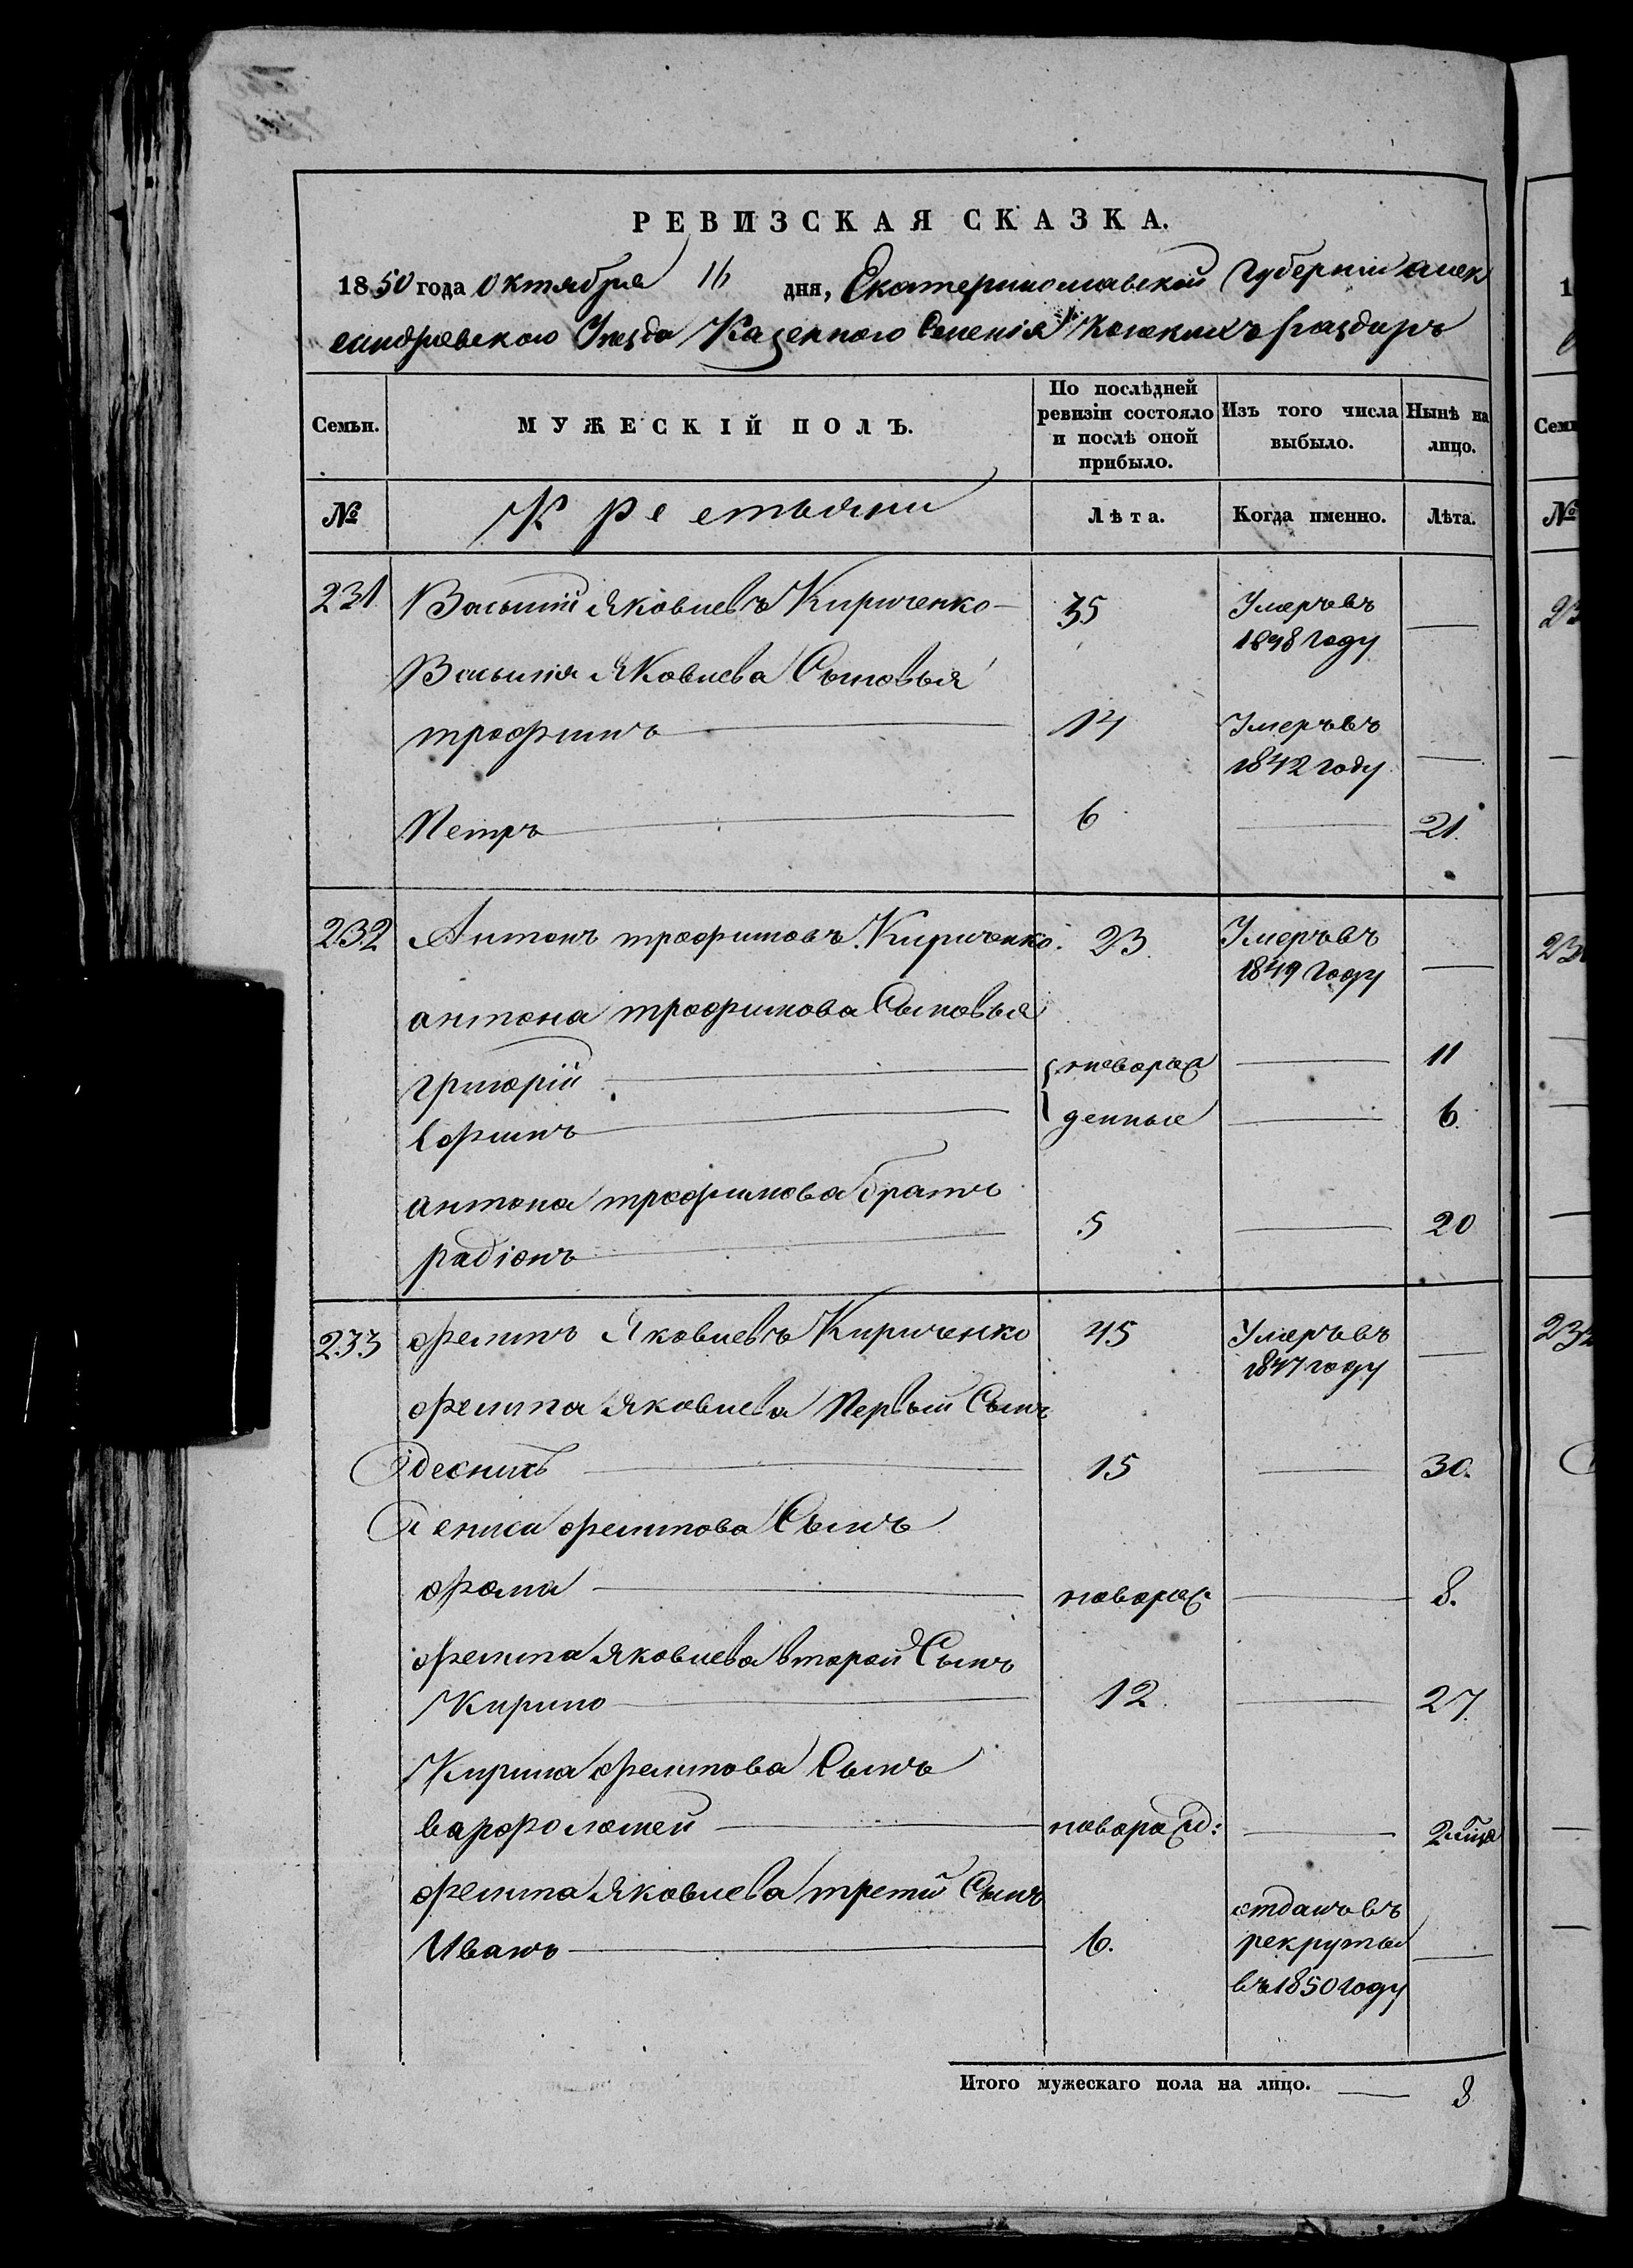 РЕВИЗСКАЯ СКАЗКА.
1850 года Октября 16 дня, Екатеринославской Губернии Алек
сандровского Уезда Казенного Селенія Конскихъ Раздоръ
Семьи.
МУЖЕСКІЙ ПОЛЪ.
По послѣдней ревизіи состояло и послѣ оной прибыло.
Изъ того числа выбыло.
Нынѣ на лицо.
№
Крестьяни
Лѣта.
Когда именно.
Лѣта.
231 Василій Яковлевъ Кириченко 35 Умеръ въ
1848 году
Василія Яковлева Сыновья
трофимъ 14 Умеръ въ
1842 году
Петръ 6 21.
232 Антонъ трофимовъ Кириченко 23 Умеръ въ
1849 году
антона трофимова Сыновья
григорій новорож 11
ефимъ денные 6.
антона трофимова братъ
радіонъ 5 20
233 филипъ Яковлевъ Кириченко 45 Умеръ въ
1847 году
филипа Яковлева Первый Сынъ
15 30.
Дениса филипова Сынъ
фома новорож 8.
филипа Яковлева второй Сынъ
Кирило 12 27.
Кирила филипова Сынъ
варфоломей новорожд: 2
филипа Яковлева третій Сынъ
Иванъ 6. отданъ въ
рекруты
въ 1850 году
Итого мужескаго пола на лицо. 8